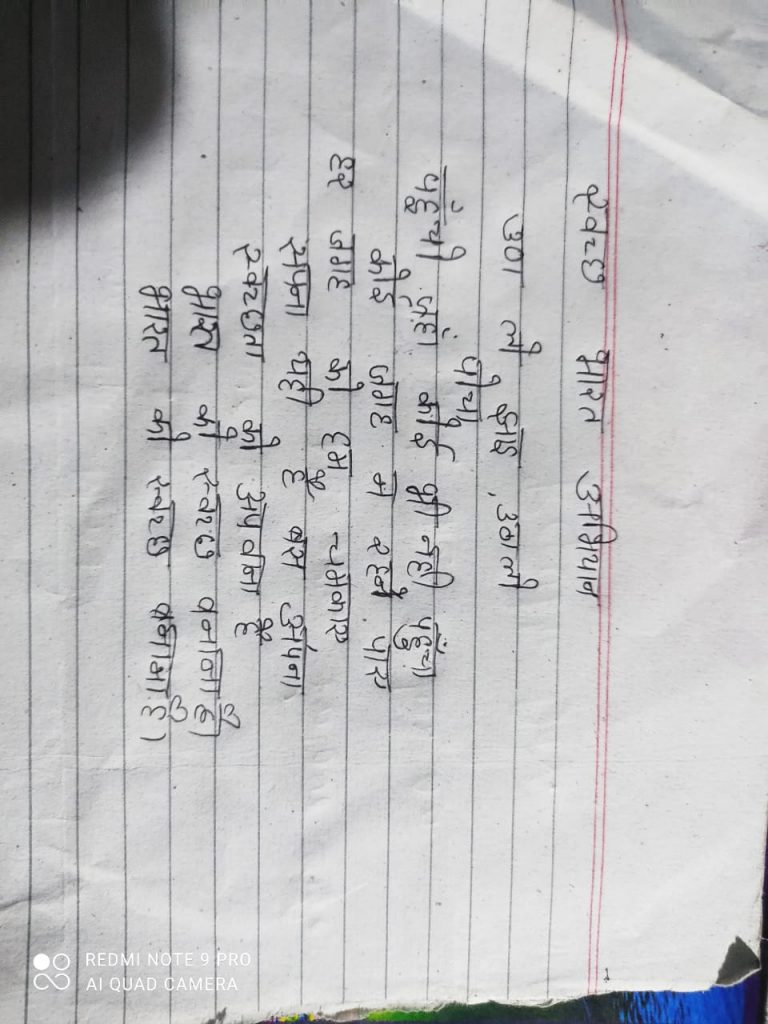 स्वच्छ भारत अभियान
उठा लो झाडू, उठालो
पोचा
पहुँचो जहां कोई भी नही पहुंचा
कोई जगह न रहने पाए
हर जगह को हम चमकाए
सपना यही है बस अपना
स्वच्छता को अपनाना है
भारत को स्वच्छ बनाना है।
भारत को स्वच्छ बनाना है।
REDMI NOTE 9 PRO
AI QUAD CAMERA